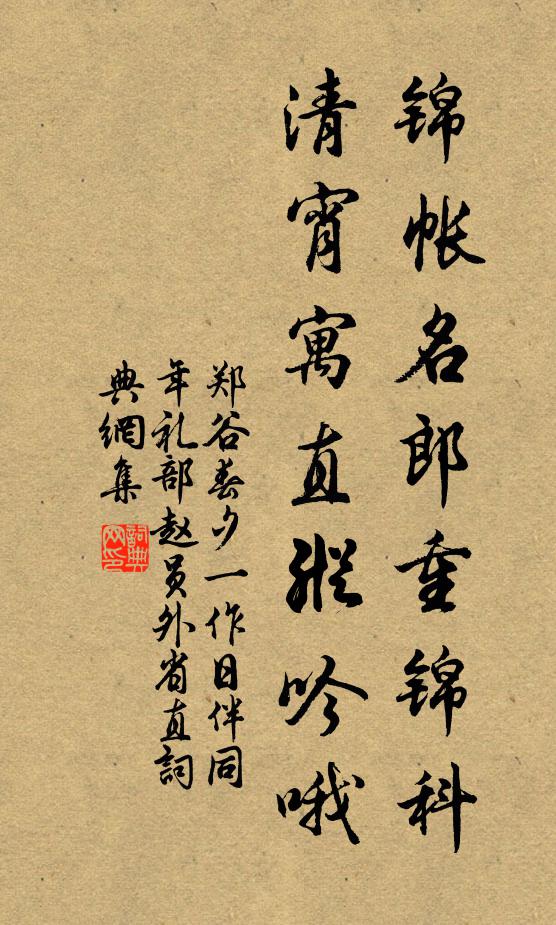 锦帐名郎重锦科
清宵寓直纵吟哦
郑谷春夕一作日伴同
年礼部赵员外省直詞
典網集
詞典网印